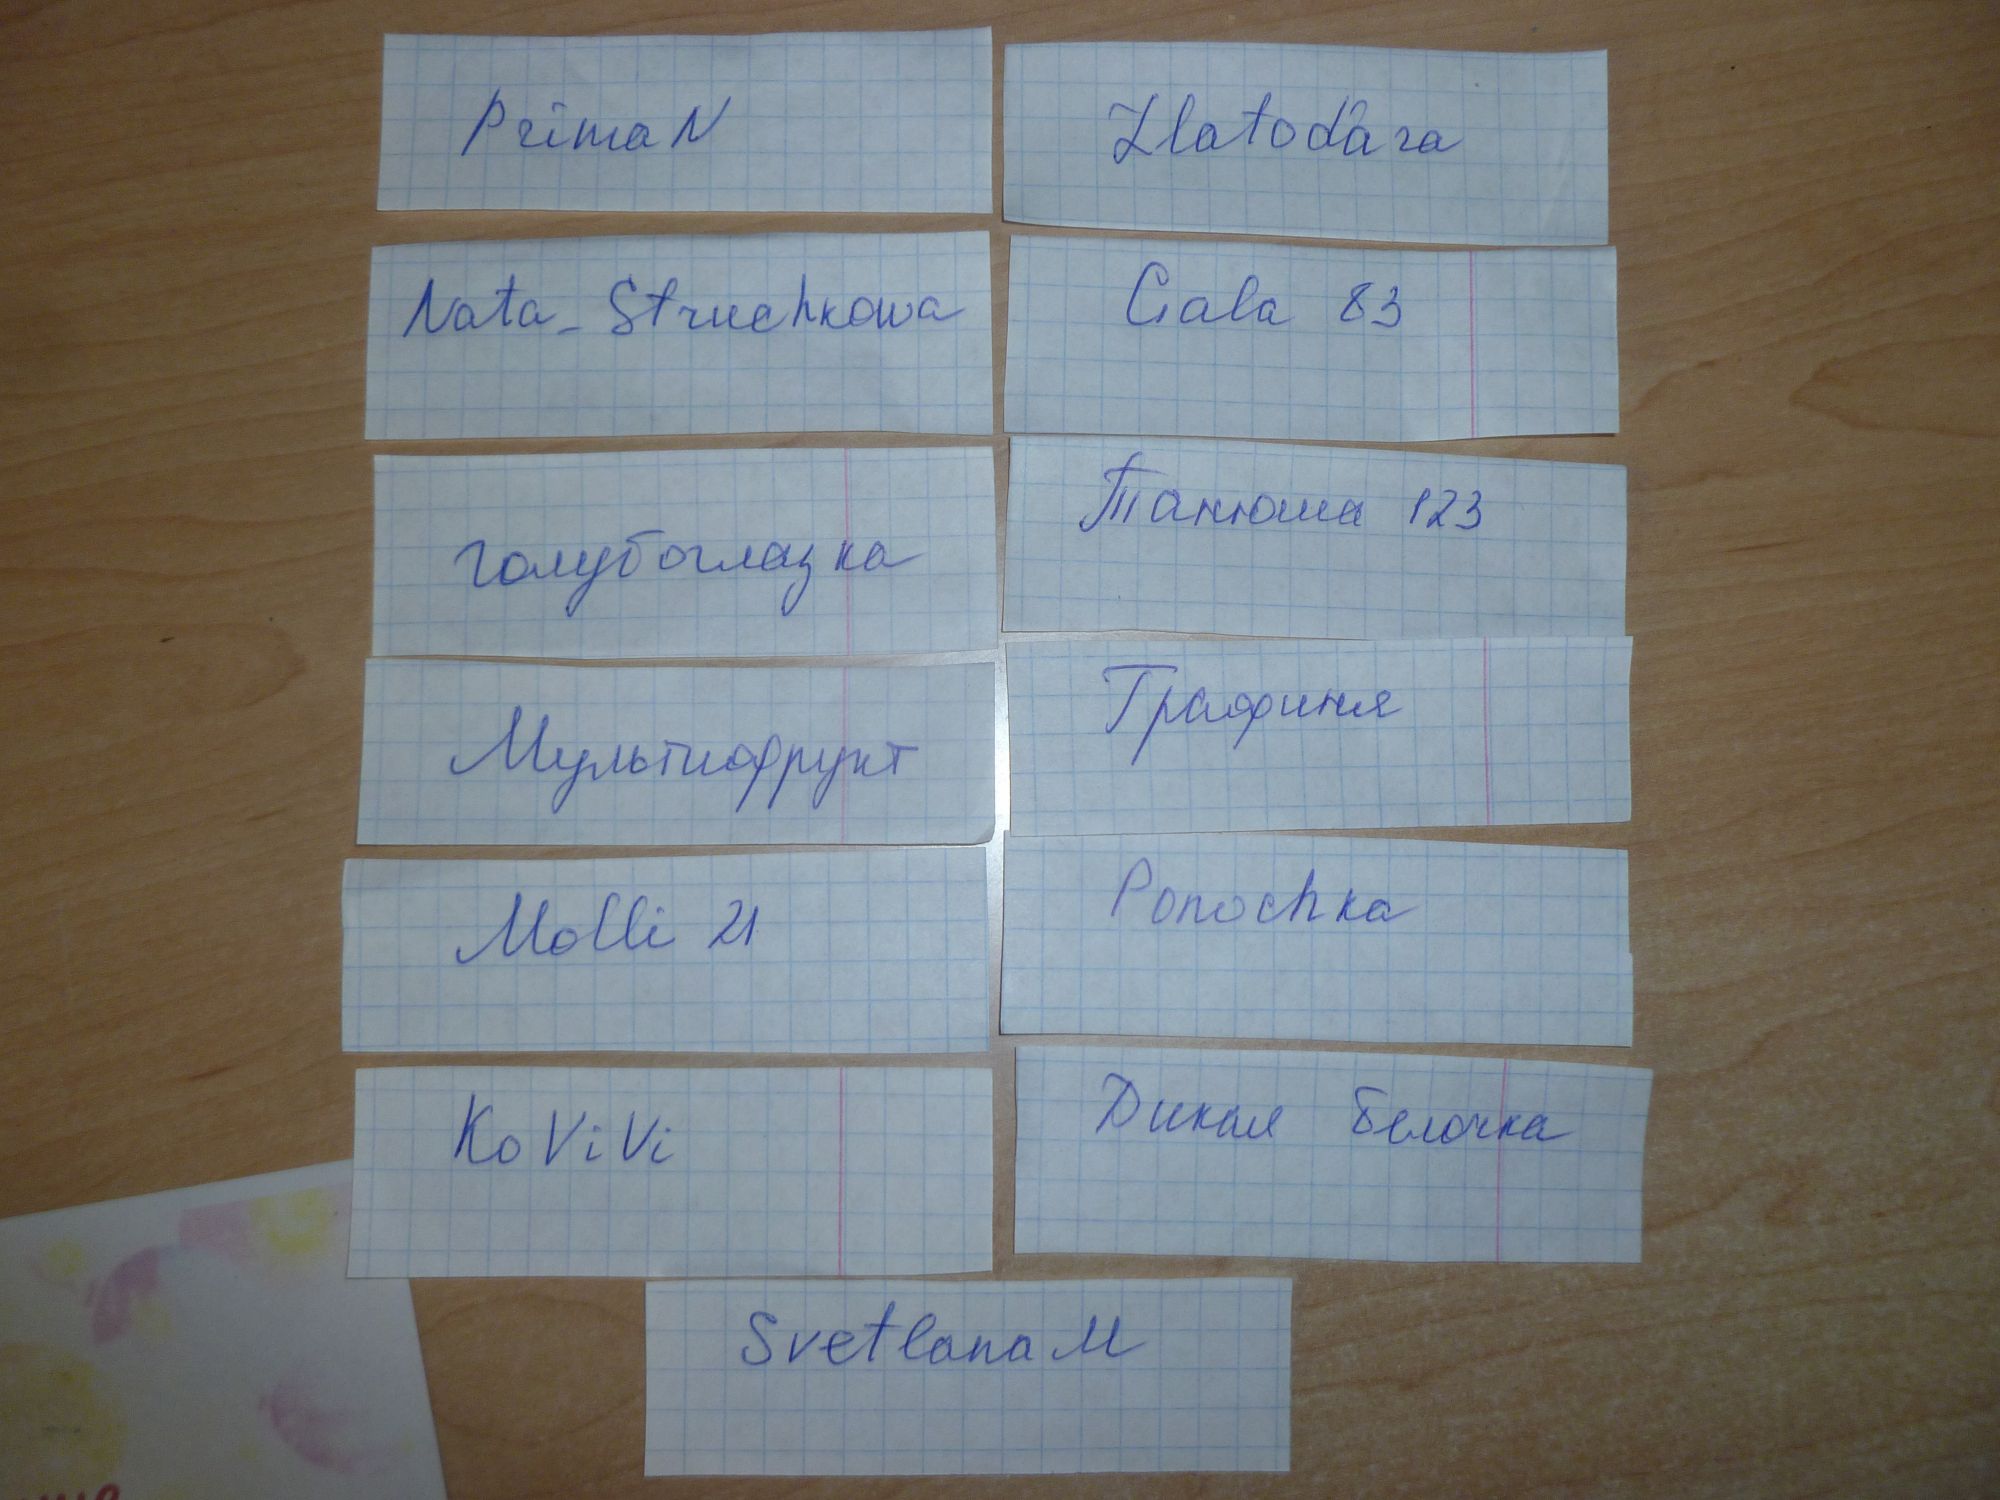 PrimaN
Zlatodara
Nata_Struchkowa
Gala 83
голубоглазка
Танюша 123
Мультифрукт
Графиня
Molli 21
Ponochka
KoViVi
Дикая Белочка
SvetlanaM